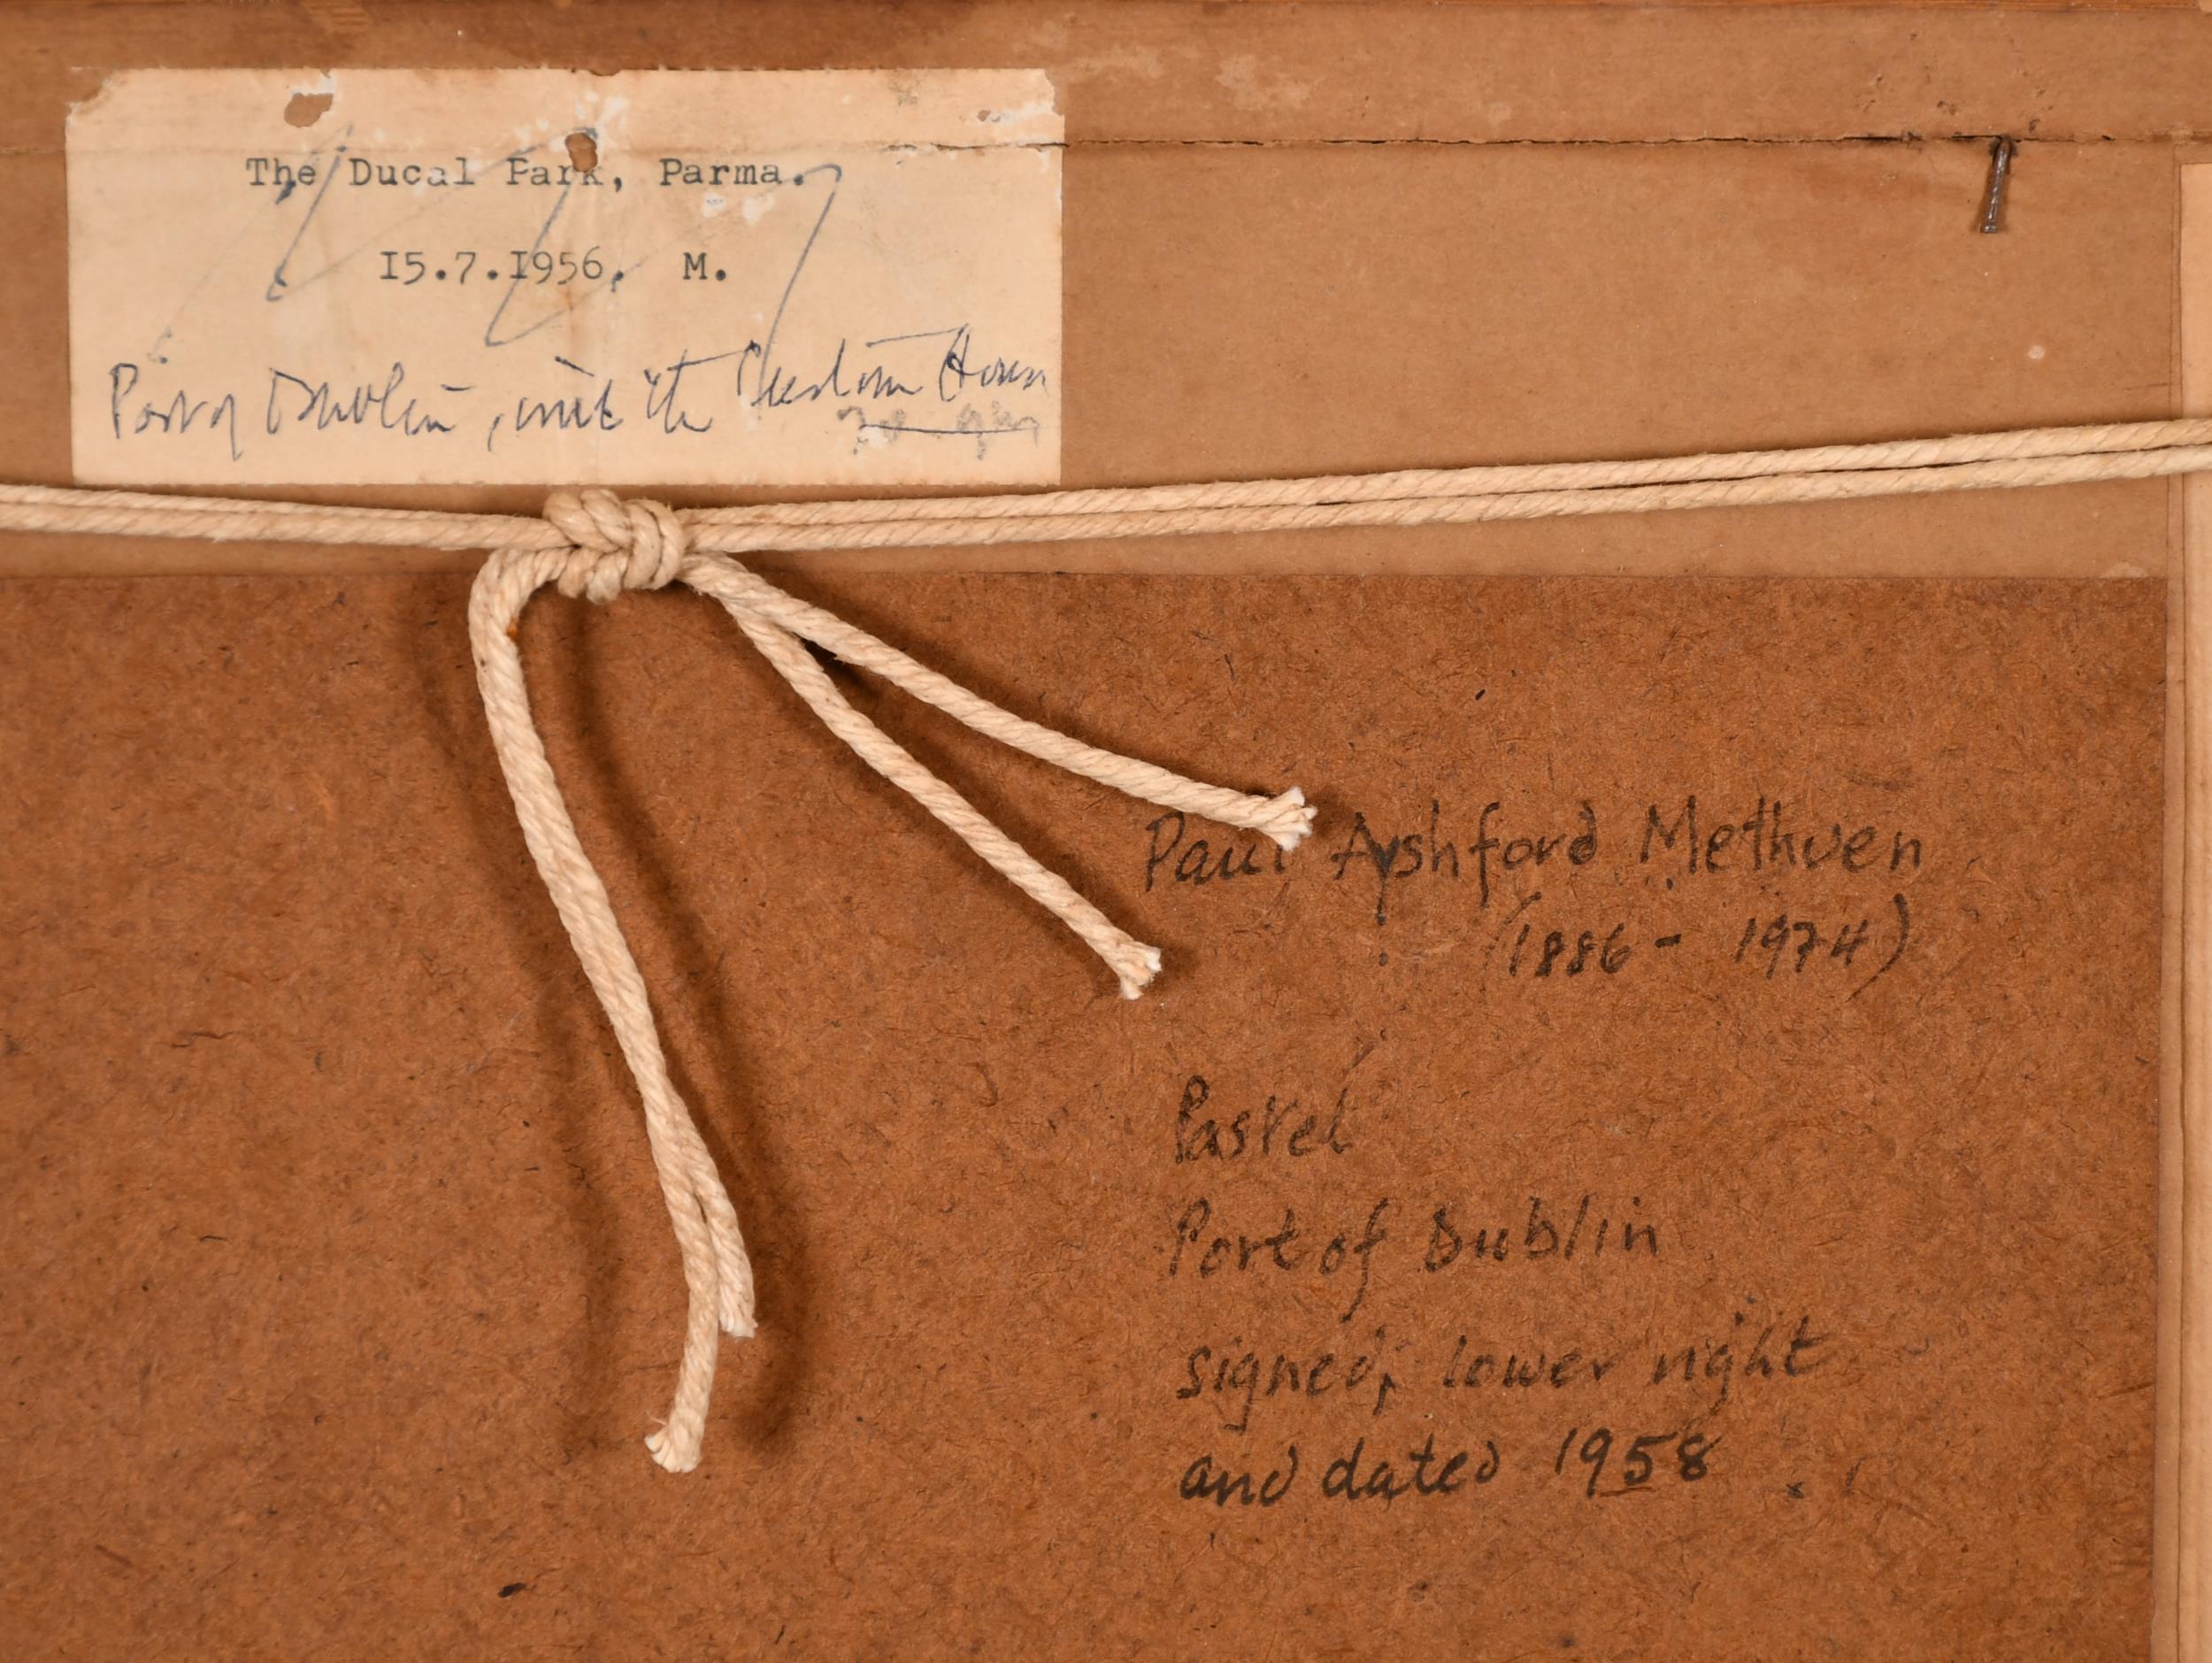 The Ducal Park, Parma.
15.7.1956. M.
Port of Dublin, with the Custom House
Paul Ayshford Methuen
(1886 - 1974)
Pastel
Port of Dublin
signed, lower right
and dated 1958